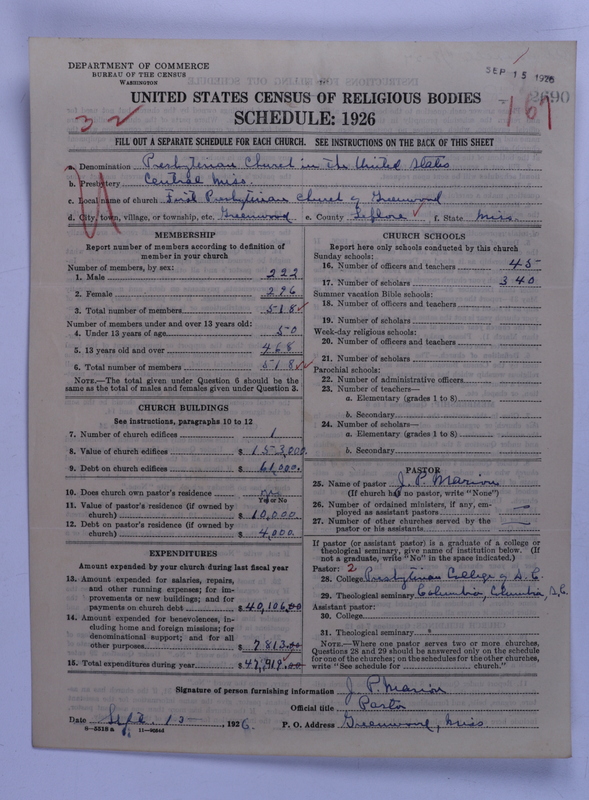 DEPARTMENT OF COMMERCE
BUREAU OF THE CENSUS
WASHINGTON
SEP 15 1926
UNITED STATES CENSUS OF RELIGIOUS BODIES
SCHEDULE: 1926
32
167
FILL OUT A SEPARATE SCHEDULE FOR EACH CHURCH. SEE INSTRUCTIONS ON THE BACK OF THIS SHEET
a. Denomination Presbyterian Church in the United States
b. Presbytery Central Miss.
c. Local name of church First Presbyterian Church of Greenwood
d. City, town, village, or township, etc. Greenwood e. County Leflore f. State Miss.
MEMBERSHIP
Report number of members according to definition of
member in your church
Number of members, by sex:
1. Male 222
2. Female 296
3. Total number of members 518
Number of members under and over 13 years old:
4. Under 13 years of age 50
5. 13 years old and over 468
6. Total number of members 518
NOTE.—The total given under Question 6 should be the
same as the total of males and females given under Question 3.
CHURCH BUILDINGS
See instructions, paragraphs 10 to 12
7. Number of church edifices 1
8. Value of church edifices $153,000.
9. Debt on church edifices $61,000.
10. Does church own pastor's residence yes
Yes or No
11. Value of pastor's residence (if owned by
church) $10,000.
12. Debt on pastor's residence (if owned by
church) $4,000.
EXPENDITURES
Amount expended by your church during last fiscal year
13. Amount expended for salaries, repairs,
and other running expenses; for im-
provements or new buildings; and for
payments on church debt $40,106.00
14. Amount expended for benevolences, in-
cluding home and foreign missions; for
denominational support; and for all
other purposes $7813.00
15. Total expenditures during year $47,919.00
CHURCH SCHOOLS
Report here only schools conducted by this church
Sunday schools:
16. Number of officers and teachers 45
17. Number of scholars 340
Summer vacation Bible schools:
18. Number of officers and teachers
19. Number of scholars
Week-day religious schools:
20. Number of officers and teachers
21. Number of scholars
Parochial schools:
22. Number of administrative officers
23. Number of teachers—
a. Elementary (grades 1 to 8)
b. Secondary
24. Number of scholars—
a. Elementary (grades 1 to 8)
b. Secondary
PASTOR
25. Name of pastor J. P. Marion
(If church has no pastor, write "None")
26. Number of ordained ministers, if any, em-
ployed as assistant pastors
27. Number of other churches served by the
pastor or his assistants
If pastor (or assistant pastor) is a graduate of a college or
theological seminary, give name of institution below. (If
not a graduate, write "No" in the space indicated.)
Pastor: 2
28. College Presbyterian College of S. C.
29. Theological seminary Columbia, Columbia, S.C.
Assistant pastor:
30. College
31. Theological seminary
NOTE.—Where one pastor serves two or more churches,
Questions 28 and 29 should be answered only on the schedule
for one of the churches; on the schedules for the other churches,
write "See schedule for church."
Signature of person furnishing information J. P. Marion
Official title Pastor
Date Sept. 13 , 1926. P. O. Address Greenwood, Miss